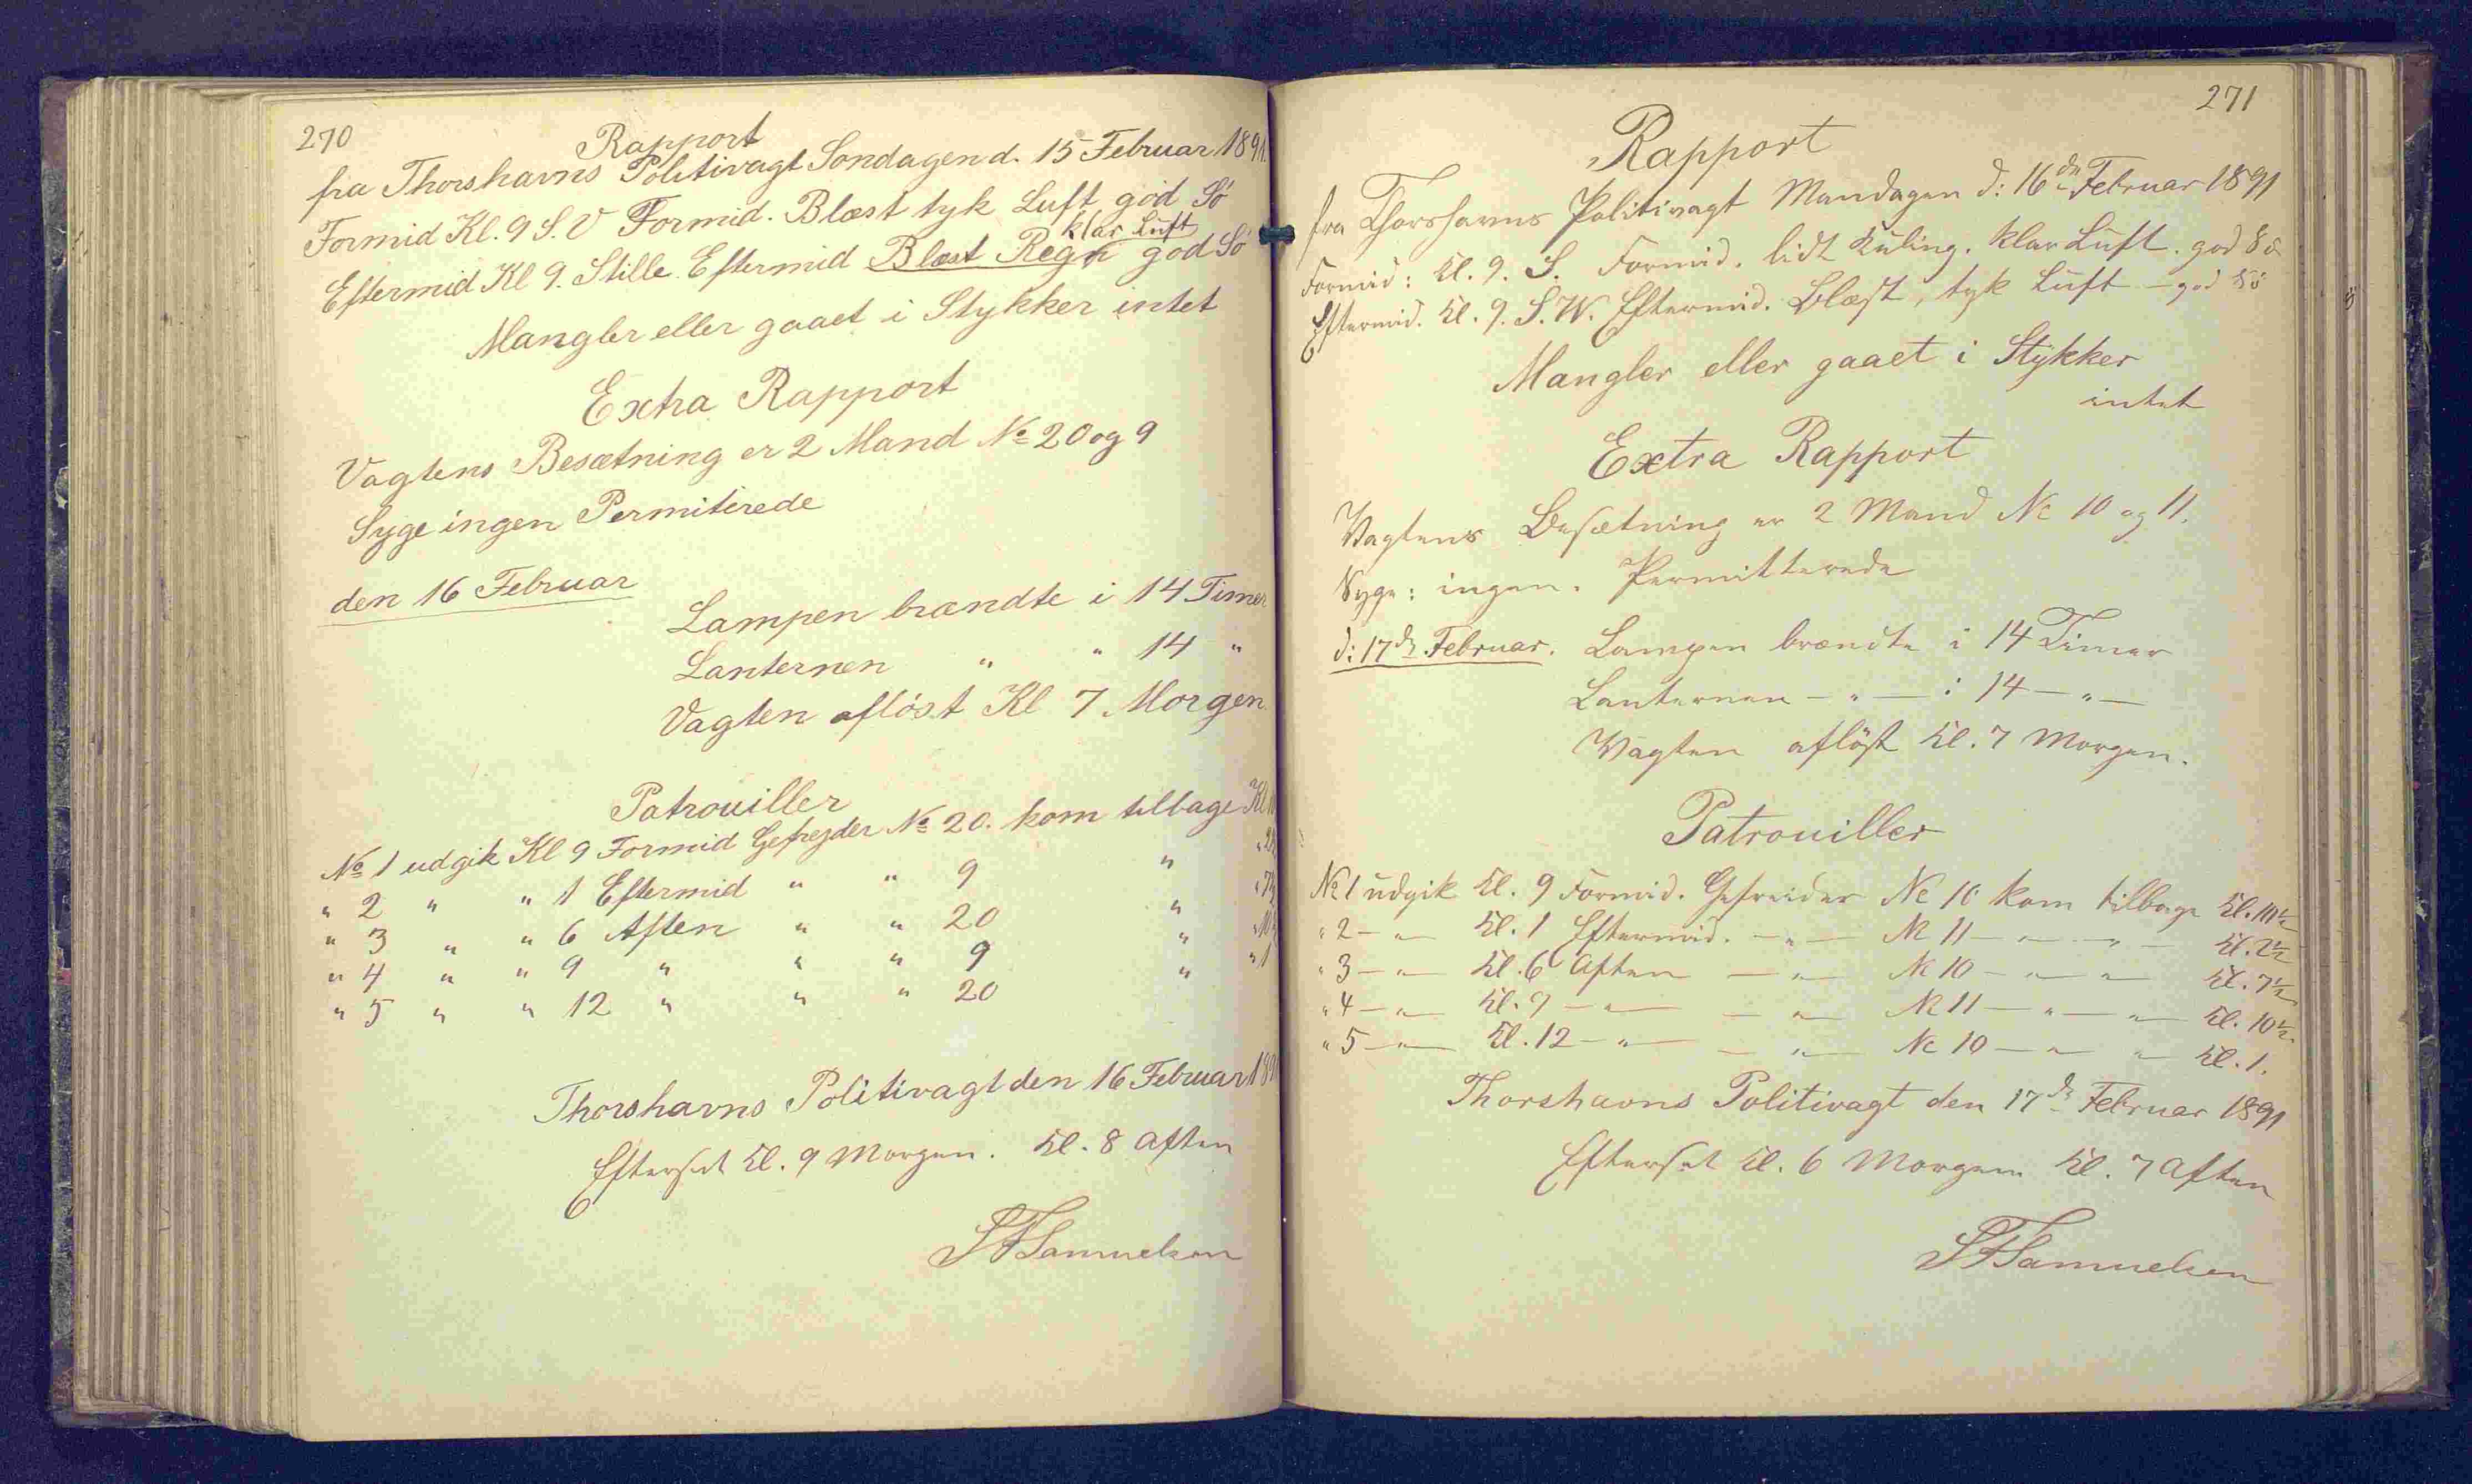 270
Rapport
fra Thorshavns Politivagt Søndagen d. 15 Februar 1891.
Formid Kl. 9 S. V Formid. Blæst tyk Luft god Sö
klar Luft
Eftermid Kl 9. Stille. Eftermid Blæst Regn god Sö
Mangler eller gaaet i Stykker intet
Extra Rapport
Vagtens Besætning er 2 Mand No 20 og 9
Syge ingen Permiterede
den 16 Februar
Lampen brændte i 14 Timer
Lanternen " " 14 "
Vagten aflöst Kl 7 Morgen
Patrouiller
No 1 udgik Kl 9 Formid Gefrejder No 20. kom tilbage Kl
" 2 " " 1 Eftermid " " 9 "
" 3 " " 6 Aften " " 20 "
" 4 " " 9 " " " 9 "
" 5 " " 12 " " " 20 " " 1
Thorshavns Politivagt den 16 Februar 1891
Efterset Kl. 9 Morgen. Kl. 8 Aften
SFSamuelsen
271
Rapport
fra Thorshavns Politivagt Mandagen d: 16de Februar 1891
Formid: Kl. 9. S. Formid. lidt Kuling. klar Luft. god Sö
Eftermid. Kl. 9. S. W. Eftermid. Blæst, tyk Luft – god Sö
Mangler eller gaaet i Stykker
intet
Extra Rapport
Vagtens Besætning er 2 Mand No 10 og 11.
Syge: ingen. Permitterede
d: 17de Februar. Lampen brændte i 14 Timer
Lanternen – " – i 14 – " –
Vagten aflöst Kl. 7 Morgen.
Patrouiller
No 1 udgik Kl. 9 Formid. Gefreider No 10 kom tilbage Kl. 10½
" 2 – " – Kl. 1 Eftermid. – " – No 11 – " – " – Kl. 2½
" 3 – " – Kl. 6 Aften – " – No 10 – " – " – Kl. 7½
" 4 – " – Kl. 9 – " – – " – No 11 – " – " – Kl. 10½
" 5 – " – Kl. 12 – " – – " – No 10 – " – " – Kl. 1.
Thorshavns Politivagt den 17de Februar 1891
Efterset Kl. 6 Morgen Kl. 7 Aften
SFSamuelsen